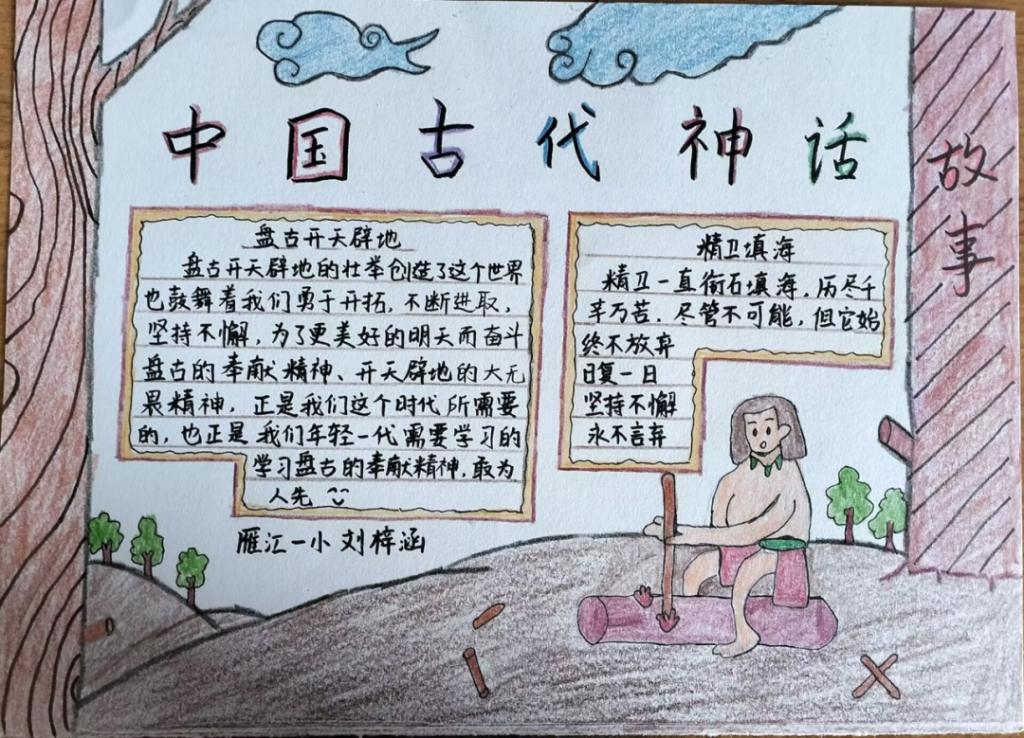 中国古代神话
故事
盘古开天辟地
盘古开天辟地的壮举创造了这个世界
也鼓舞着我们勇于开拓,不断进取,
坚持不懈,为了更美好的明天而奋斗
盘古的奉献精神、开天辟地的大无
畏精神,正是我们这个时代所需要
的,也正是我们年轻一代需要学习的
学习盘古的奉献精神,敢为
人先
精卫填海
精卫一直衔石填海,历尽千
辛万苦.尽管不可能,但它始
终不放弃
日复一日
坚持不懈
永不言弃
雁汇一小 刘梓涵